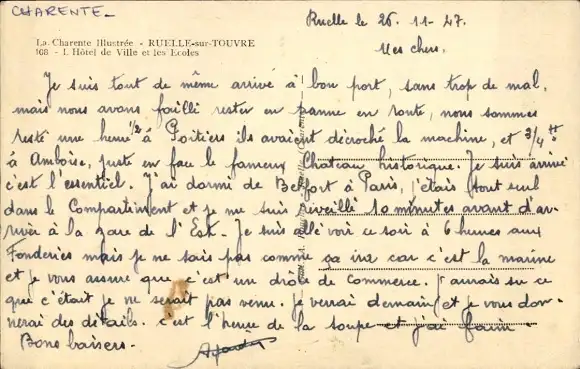 CHARENTE_
Ruelle le 26. 11 - 47.
La Charente Illustrée - RUELLE-sur-TOUVRE
168 - L'Hôtel de Ville et les Ecoles
Mes chers.
Je suis tout de même arrivé à bon port, sans trop de mal,
mais nous avons failli rester en panne en route, nous sommes
resté une heure 1/2 à Poitiers ils avaient décroché la machine, et 3/4 H
à Amboise, juste en face le fameux Chateau historique. Je suis arrivé
c'est l'essentiel. J'ai dormi de Belfort à Paris, j'étais tout seul
dans le Compartiment et je me suis réveillé 10 minutes avant d'ar-
rivée à la gare de l'Est. Je suis allé voir ce soir à 6 heures aux
Fonderies mais je ne sais pas comme ça ira car c'est la marine
et je vous assure que c'est un drôle de commerce. J'aurais su ce
que c'était je ne serait pas venu. Je verrai demain et je vous don-
nerai des détails. c'est l'heure de la soupe et j'ai faim.
Bons baisers.